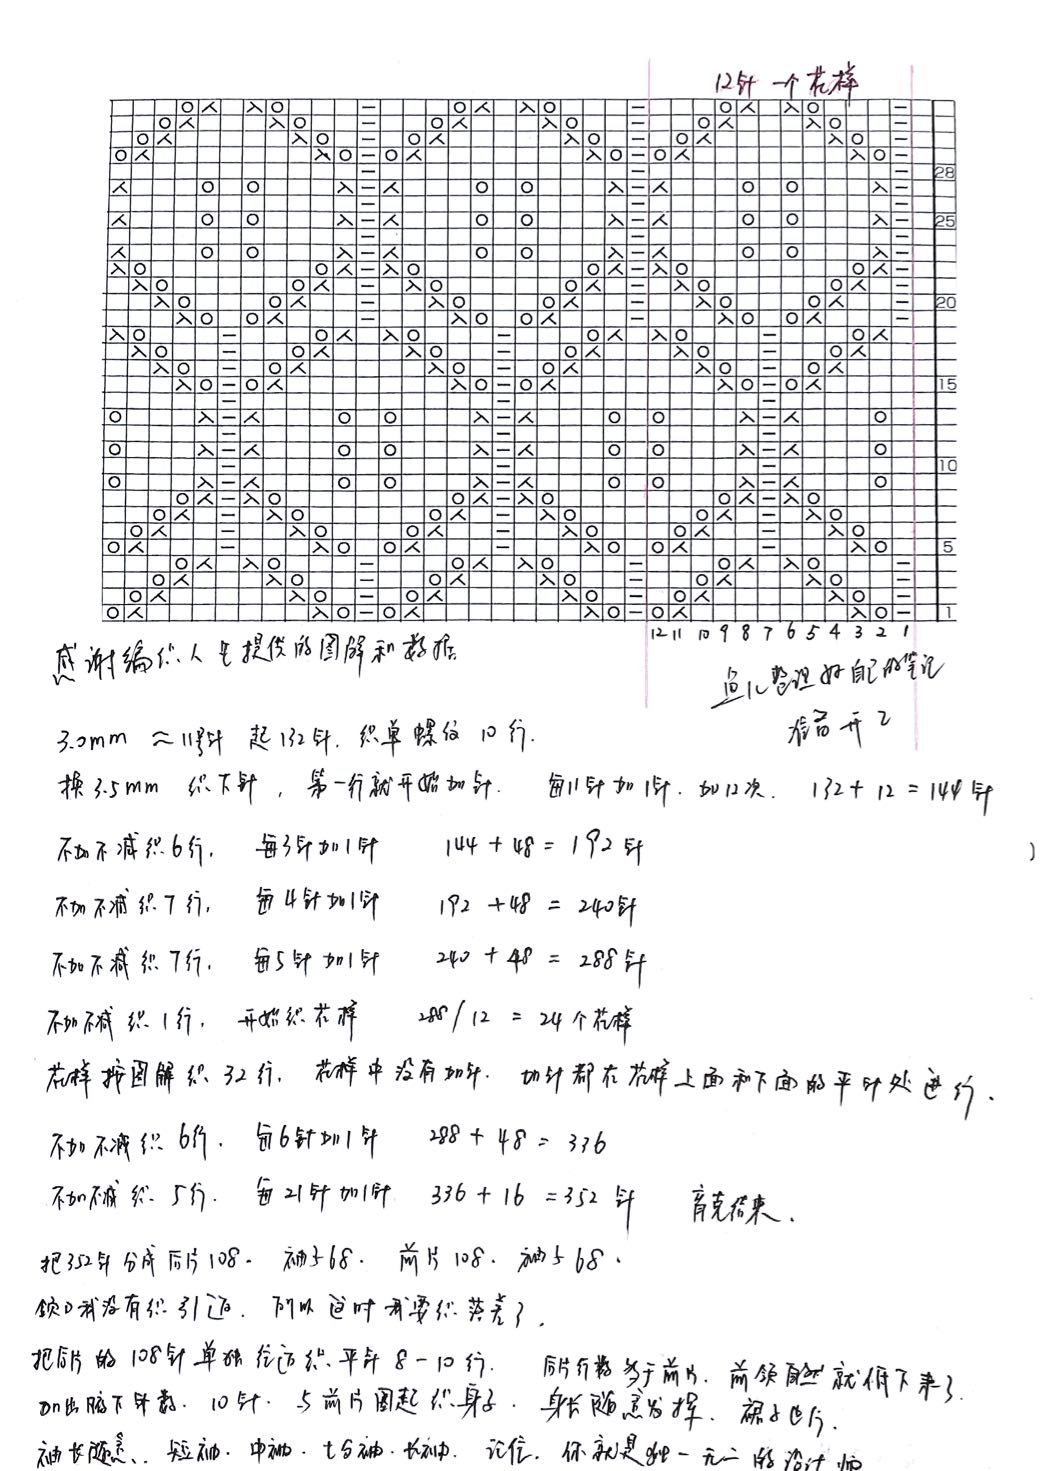 12针一个花样
28
25
20
15
10
5
1
12 11 10 9 8 7 6 5 4 3 2 1
感谢编织人生提供的图解和数据
鱼儿整理好自己的笔记
准备开工
3.0mm ≈ 11号针 起132针. 织单螺纹10行.
换3.5mm 织下针, 第一行就开始加针. 每11针加1针. 加12次. 132+12=144针
不加不减织6行, 每3针加1针 144+48=192针
不加不减织7行, 每4针加1针 192+48=240针
不加不减织7行, 每5针加1针 240+48=288针
不加不减织1行, 开始织花样 288/12=24个花样
花样按图解织32行, 花样中没有加针. 加针都在花样上面和下面的平针处进行.
不加不减织6行. 每6针加1针 288+48=336
不加不减织5行. 每21针加1针 336+16=352针 育克结束.
把352针分成后片108. 袖子68. 前片108. 袖子68.
领口我没有织引返. 所以这时我要织落差了.
把后片的108针单独往返织平针8-10行. 后片行数多于前片. 前领自然就低下来了.
加出腋下针数. 10针. 与前片圈起织身子. 身长随意发挥. 裙子也行.
袖长随意. 短袖. 中袖. 七分袖. 长袖. 记住. 你就是独一无二的设计师